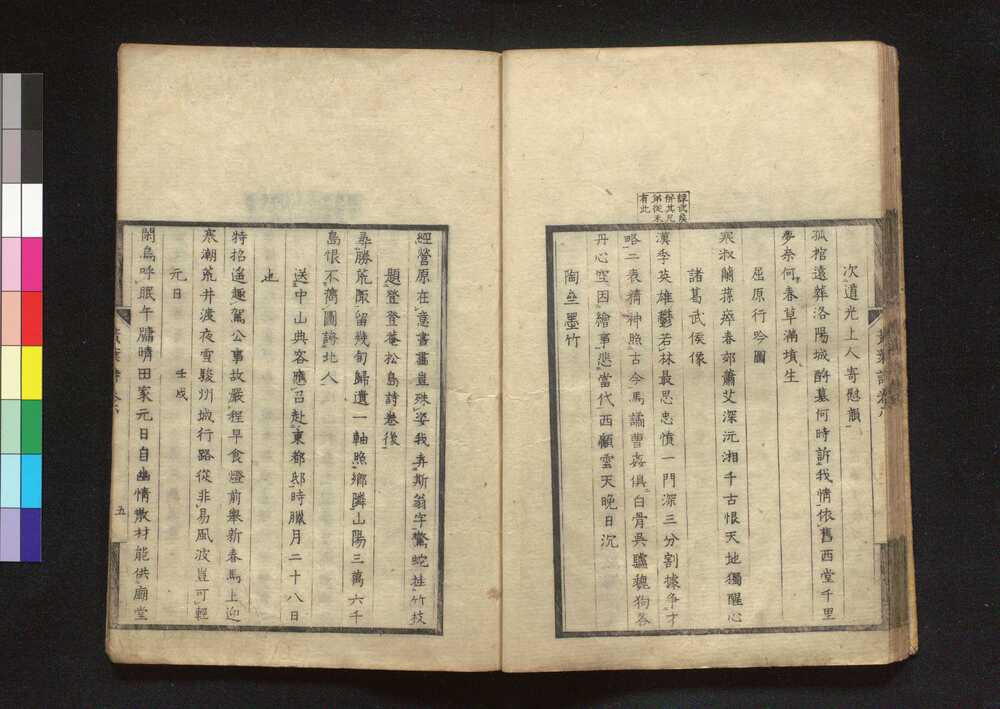 次道光上人寄慰韻
孤棺遠葬洛陽城酹墓何時訴我情依舊西堂千里
夢奈何春草滿墳生
屈原行吟圖
寒淑蘭蓀瘁春郊蕭艾深沅湘千古恨天地獨醒心
諸葛武侯像
漢季英雄鬱若林最思忠憤一門深三分割據爭才
略二表精神照古今馬譎曹姦俱白骨吳驢魏狗各
丹心空因繪事悲當代西顧雲天晚日沉
陶壘墨竹
經營原在意書畫豈殊姿我弄斯翁字驚蛇挂竹枝
題登登菴松島詩卷後
尋勝荒陬留幾旬歸遺一軸照鄉隣山陽三萬六千
島恨不萬圖誇北人
送中山典客應召赴東都邸時臘月二十八日
也
特招遙趣駕公事故嚴程早食燈前舉新春馬上迎
寒潮荒井渡夜雪駿州城行路從非易風波豈可輕
元日 壬戌
閑鳥呼眠午牖晴田家元日自幽情散材能供廟堂
五